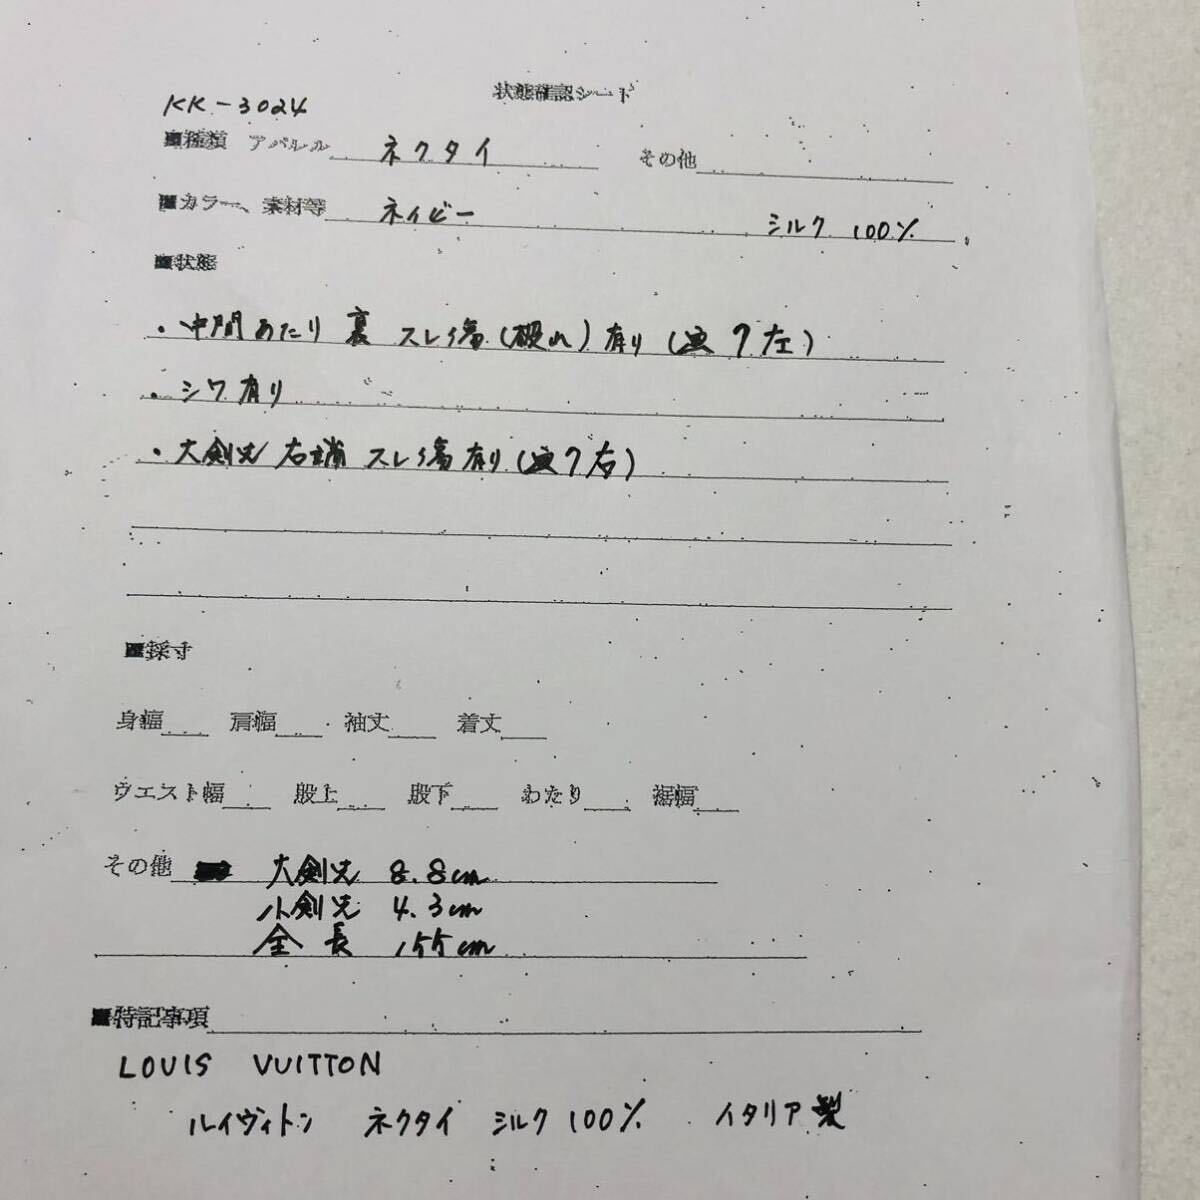 状態確認シート
KK-3024
■種類 アパレル ネクタイ その他
■カラー、素材等 ネイビー シルク 100%
■状態
・中間あたり 裏 スレ傷(破れ)有り(画7左)
・シワ有り
・大剣先 右端 スレ傷有り(画7右)
■採寸
身幅 肩幅 袖丈 着丈
ウエスト幅 股上 股下 わたり 裾幅
その他 大剣先 8.8cm
小剣先 4.3cm
全長 155cm
■特記事項
LOUIS VUITTON
ルイヴィトン ネクタイ シルク 100% イタリア製